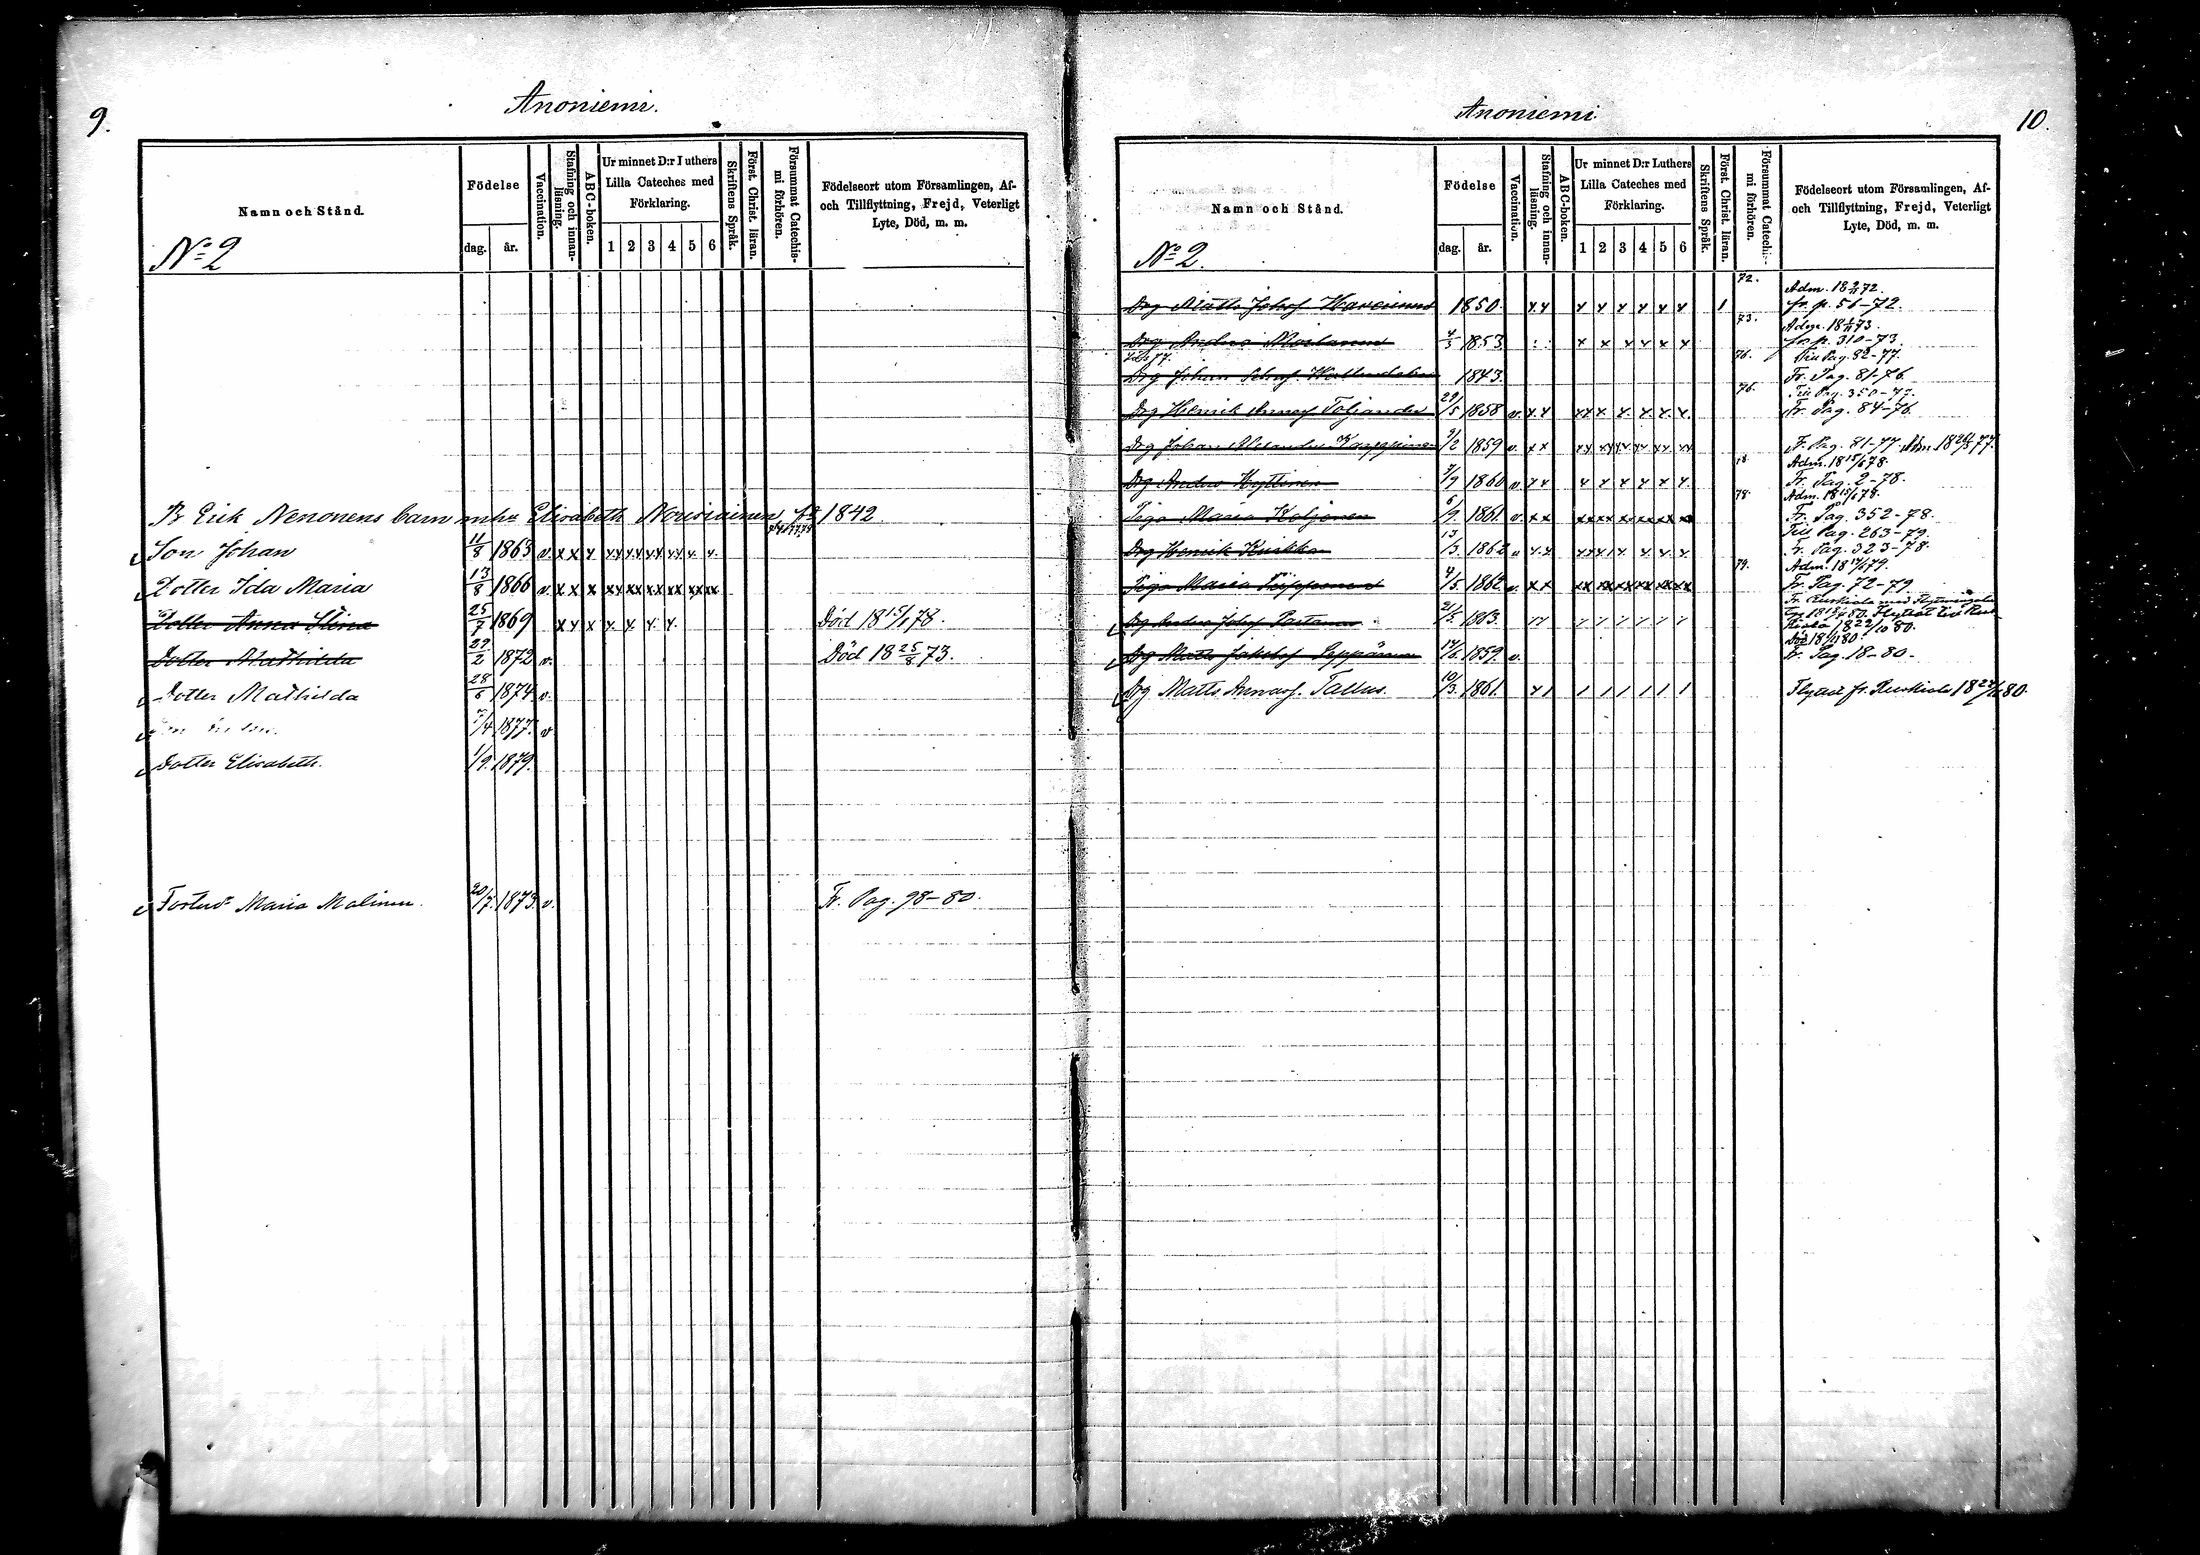 9.
Anoniemi.
Namn och Stånd.
No 2
Födelse
dag. år.
Vaccination.
Stafning och innan-läsning.
ABC-boken.
Ur minnet D:r Luthers Lilla Cateches med Förklaring.
1 2 3 4 5 6
Skriftens Språk.
Först. Christ. läran.
Försummat Catechismi förhören.
Födelseort utom Församlingen, Af- och Tillflyttning, Frejd, Veterligt Lyte, Död, m. m.
B Erik Nenonens barn mhu Elisabeth 1842
Son Johan 11/8 1863 v. x x x xx xx xx xx x. x.
Dotter Ida Maria 13/8 1866 v. x x x xx xx xx xx xx xx
Dotter Anna Stina 25/7 1869 x x x x. x. x x. Död 18 15/1 78.
Dotter Mathilda 29/2 1872 v. Död 18 25/8 73.
Dotter Mathilda 28/6 1874 v.
7/4 1877. v
Dotter Elisabeth. 1/9. 1879.
Fosterd. Maria Malinen. 20/7. 1873. v. Fr. Pag. 98-80.
Anoniemi
10.
Namn och Stånd.
No 2.
Födelse
dag. år.
Vaccination.
Stafning och innan-läsning.
ABC-boken.
Ur minnet D:r Luthers Lilla Cateches med Förklaring.
1 2 3 4 5 6
Skriftens Språk.
Först. Christ. läran.
Försummat Catechismi förhören.
Födelseort utom Församlingen, Af- och Tillflyttning, Frejd, Veterligt Lyte, Död, m. m.
72. Adm. 18 72.
Drg Matts Johsf 1850. x x x x x x x x 1 fr. p. 51-72.
73. Adm. 18 73.
Drg Anders 4/3 1853 x x x x x x fr p. 310-73.
76. Till Pag. 82-77.
Drg Johan 1843. Fr. Pag. 81-76.
76. Till Pag. 350-77.
Drg Henrik Toljander 29/5 1858 v. x x xx x x. x. x. x. Fr. Pag. 84-76.
Drg Johan Alexander 9/2 1859 v. x x Fr. Pag. 81-77. Adm. 18 77.
78. Adm. 18 15/6 78.
Drg Anders Hyttinen 7/9 1860 v x x x x x x x x. Fr. Pag. 2-78.
78. Adm. 18 15/6 78.
Piga Maria Koljonen 6/9. 1861. v. x x Fr. Pag. 352-78.
Till Pag. 263-79.
Drg Henrik 13/3. 1862 v x x Fr. Pag. 323-78.
79. Adm. 18 79.
Piga Maria 4/5. 1862. v. x x Fr. Pag. 72-79
Drg Anders Johsf Partanen 21/5. 1863. 18 22/10 80.
Död 18 80.
Drg Matts Jakobsf Seppänen 14/6. 1859. v. Fr. Pag. 18-80.
Drg Matts Tallus. 10/3. 1861. x 1 1 1 1 1 1 1 Flyttat fr. Ruskiala 18 80.